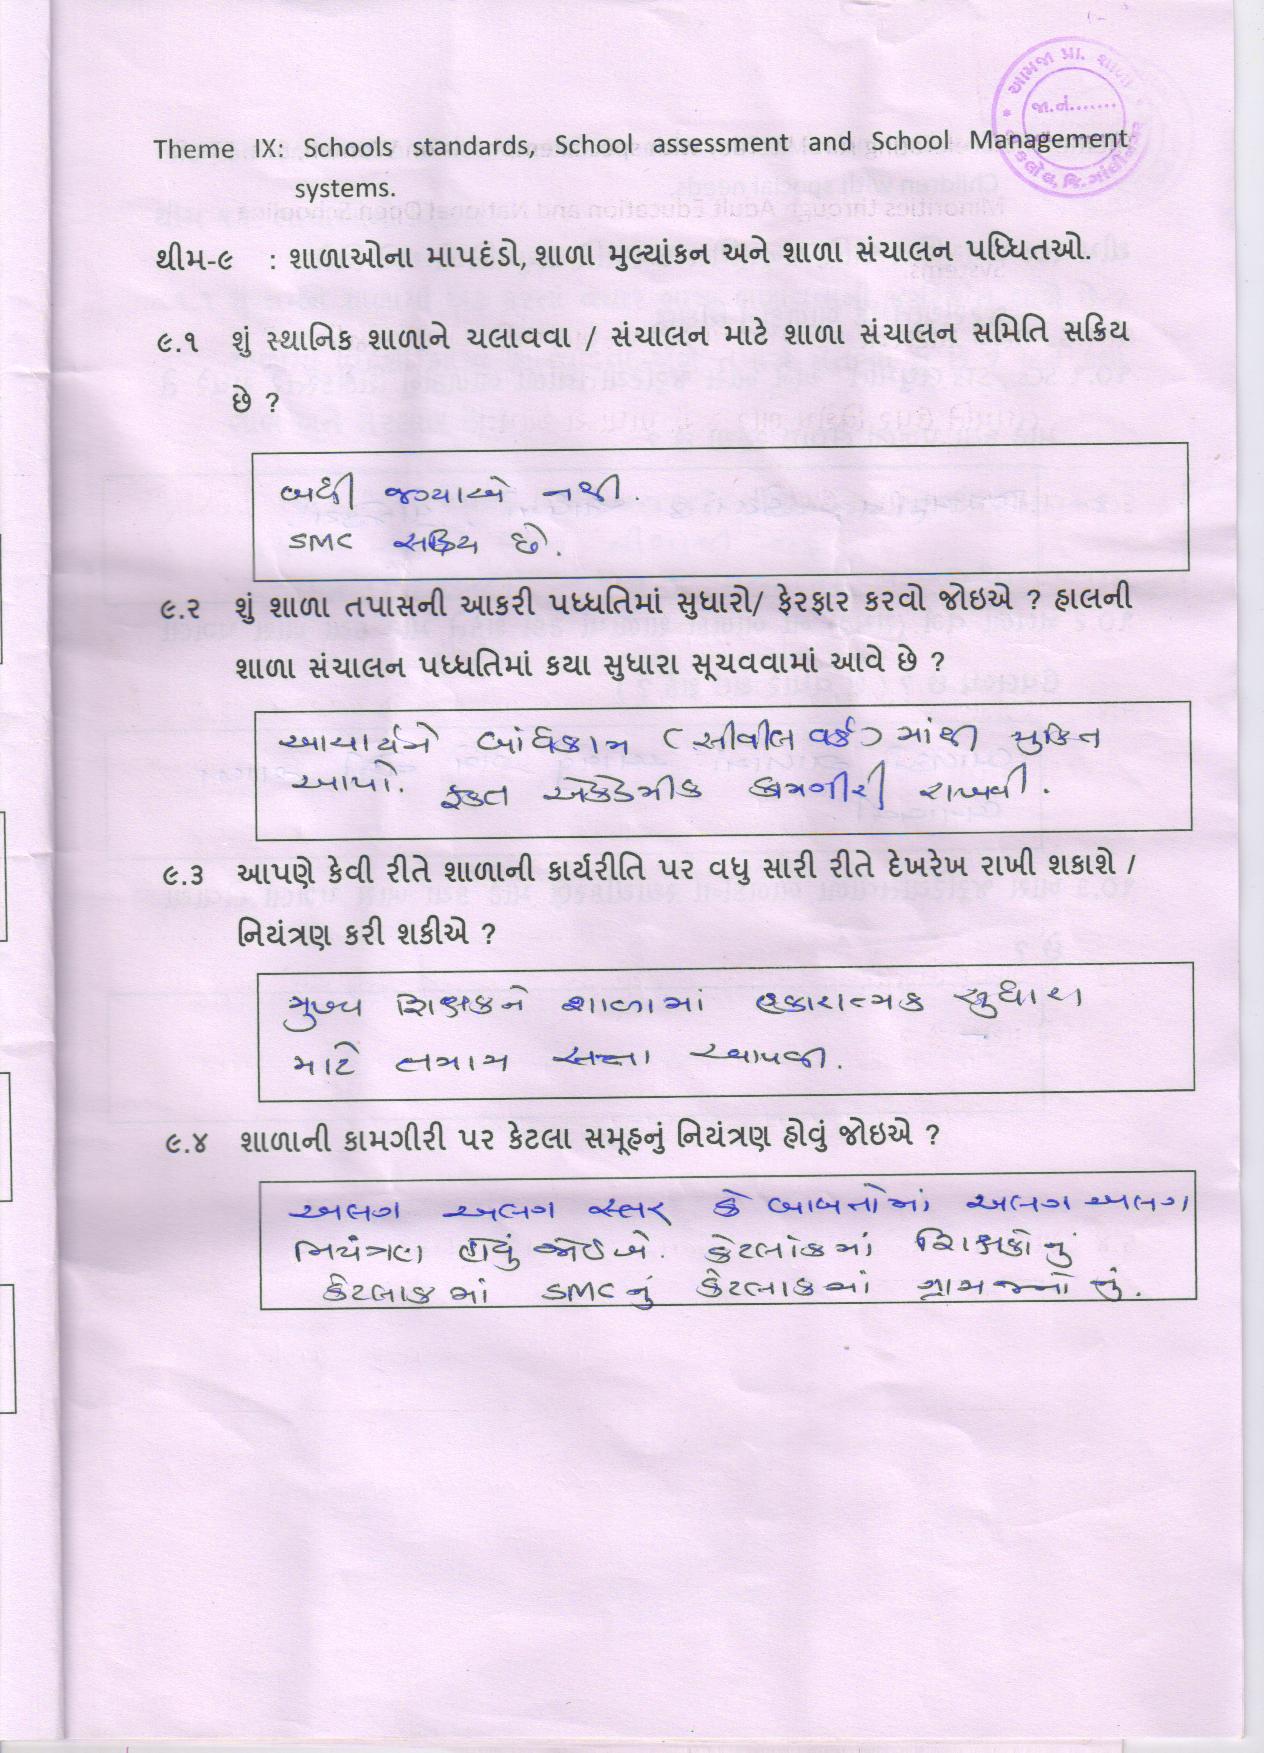 આમજા પ્રા. શાળા
જા.નં.......
કલોલ, જિ.ગાંધીનગર
Theme IX: Schools standards, School assessment and School Management
systems.
થીમ-૯ : શાળાઓના માપદંડો, શાળા મુલ્યાંકન અને શાળા સંચાલન પધ્ધિતઓ.
૯.૧ શું સ્થાનિક શાળાને ચલાવવા / સંચાલન માટે શાળા સંચાલન સમિતિ સક્રિય
છે ?
બધી જગ્યાએ નથી.
SMC સક્રિય છે.
૯.૨ શું શાળા તપાસની આકરી પધ્ધતિમાં સુધારો/ ફેરફાર કરવો જોઇએ ? હાલની
શાળા સંચાલન પધ્ધતિમાં કયા સુધારા સૂચવવામાં આવે છે ?
આચાર્યને બાંધકામ (સીવીલ વર્ક) માંથી મુકિત
આપો. ફકત એકેડેમીક કામગીરી રાખવી.
૯.૩ આપણે કેવી રીતે શાળાની કાર્યરીતિ પર વધુ સારી રીતે દેખરેખ રાખી શકાશે /
નિયંત્રણ કરી શકીએ ?
મુખ્ય શિક્ષકને શાળામાં હકારાત્મક સુધારા
માટે તમામ સત્તા આપવી.
૯.૪ શાળાની કામગીરી પર કેટલા સમૂહનું નિયંત્રણ હોવું જોઇએ ?
અલગ અલગ સ્તર કે બાબતોમાં અલગ અલગ
નિયંત્રણ હોવું જોઈએ. કેટલાંકમાં શિક્ષકોનું
કેટલાકમાં SMCનું કેટલાકમાં ગ્રામજનોનું.